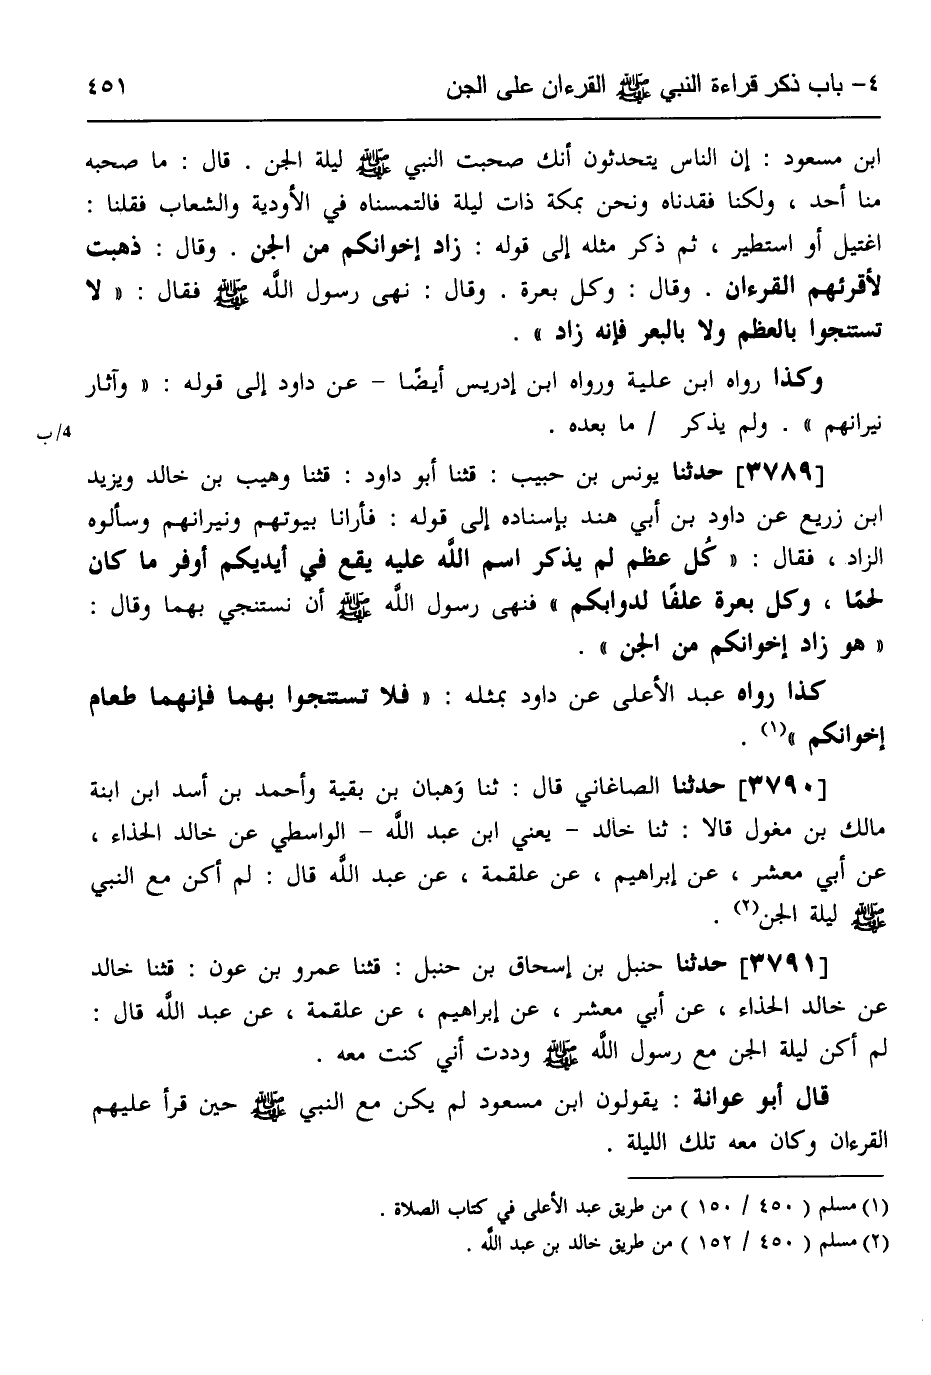 ٤- باب ذكر قراءة النبي ﷺ القرءان على الجن ٤٥١
ابن مسعود : إن الناس يتحدثون أنك صحبت النبي ﷺ ليلة الجن . قال : ما صحبه
منا أحد ، ولكنا فقدناه ونحن بمكة ذات ليلة فالتمسناه في الأودية والشعاب فقلنا :
اغتيل أو استطير ، ثم ذكر مثله إلى قوله : زاد إخوانكم من الجن . وقال : ذهبت
لأقرئهم القرءان . وقال : وكل بعرة . وقال : نهى رسول اللَّه ﷺ فقال : « لا
تستنجوا بالعظم ولا بالبعر فإنه زاد » .
وكذا رواه ابن علية ورواه ابن إدريس أيضًا – عن داود إلى قوله : « وآثار
نيرانهم » . ولم يذكر / ما بعده .
4/ب
[٣٧٨٩] حدثنا يونس بن حبيب : قثنا أبو داود : قثنا وهيب بن خالد ويزيد
ابن زريع عن داود بن أبي هند بإسناده إلى قوله : فأرانا بيوتهم ونيرانهم وسألوه
الزاد ، فقال : « كُل عظم لم يذكر اسم اللَّه عليه يقع في أيديكم أوفر ما كان
لحمًا ، وكل بعرة علفًا لدوابكم » فنهى رسول اللَّه ﷺ أن نستنجي بهما وقال :
« هو زاد إخوانكم من الجن » .
كذا رواه عبد الأعلى عن داود بمثله : « فلا تستنجوا بهما فإنهما طعام
إخوانكم »(١) .
[٣٧٩٠] حدثنا الصاغاني قال : ثنا وَهبان بن بقية وأحمد بن أسد ابن ابنة
مالك بن مغول قالا : ثنا خالد – يعني ابن عبد اللَّه – الواسطي عن خالد الحذاء ،
عن أبي معشر ، عن إبراهيم ، عن علقمة ، عن عبد اللَّه قال : لم أكن مع النبي
ﷺ ليلة الجن(٢) .
[٣٧٩١] حدثنا حنبل بن إسحاق بن حنبل : قثنا عمرو بن عون : قثنا خالد
عن خالد الحذاء ، عن أبي معشر ، عن إبراهيم ، عن علقمة ، عن عبد اللَّه قال :
لم أكن ليلة الجن مع رسول اللَّه ﷺ وددت أني كنت معه .
قال أبو عوانة : يقولون ابن مسعود لم يكن مع النبي ﷺ حين قرأ عليهم
القرءان وكان معه تلك الليلة .
(١) مسلم ( ٤٥٠ / ١٥٠ ) من طريق عبد الأعلى في كتاب الصلاة .
(٢) مسلم ( ٤٥٠ / ١٥٢ ) من طريق خالد بن عبد اللَّه .